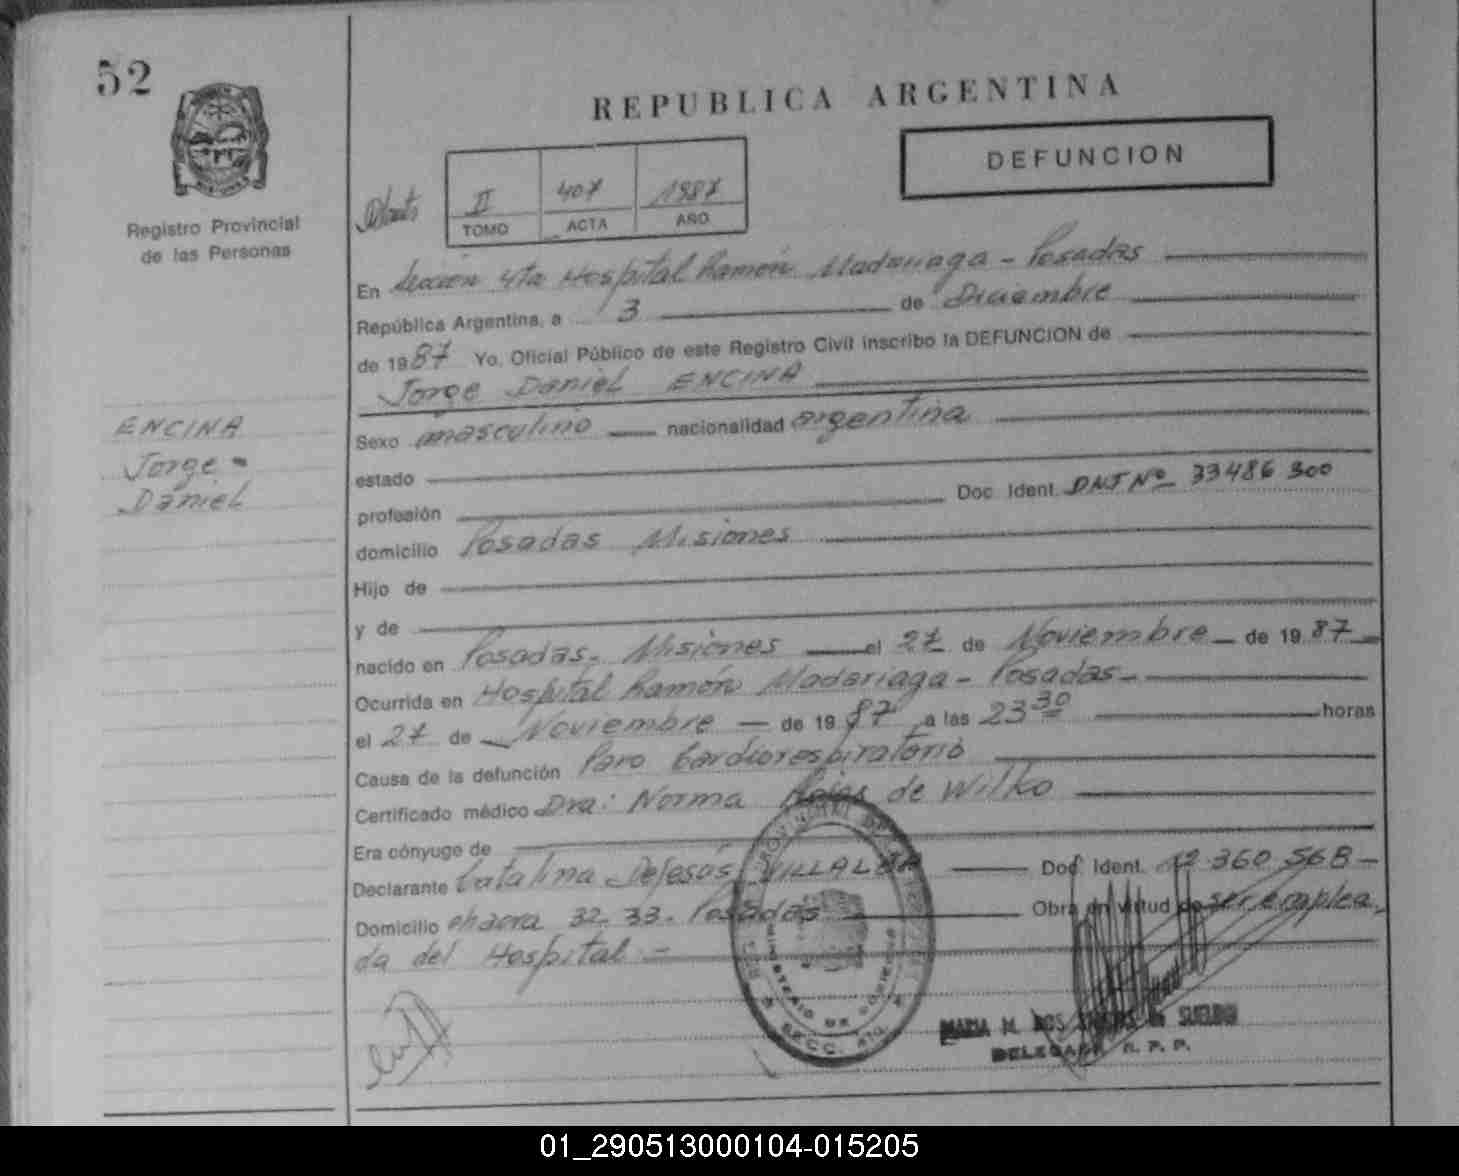 52
REPUBLICA ARGENTINA
DEFUNCION
Registro Provincial
de las Personas
II 407 1987
TOMO ACTA AÑO
En Sección 4ta Hospital Ramón Madariaga - Posadas
República Argentina, a 3 de Diciembre
de 1987 Yo, Oficial Público de este Registro Civil inscribo la DEFUNCION de
Jorge Daniel ENCINA
ENCINA
Jorge -
Daniel
Sexo masculino nacionalidad argentina
estado
profesión Doc. Ident. DNI Nº 33486 300
domicilio Posadas Misiones
Hijo de
y de
nacido en Posadas. Misiones el 27 de Noviembre de 1987
Ocurrida en Hospital Ramón Madariaga - Posadas-
el 27 de Noviembre de 1987 a las 23 30 horas
Causa de la defunción Paro Cardiorespiratorio
Certificado médico Dra: Norma Rojas de Wilko
Era cónyuge de
Declarante Catalina DeJesús VILLALBA Doc. Ident. 12.360.568-
Domicilio chacra 32-33. Posadas Obra en virtud de ser emplea
da del Hospital.-
MINISTERIO DE GOBIERNO
SECC. 4ta.
MARIA M. DOS
DELEGADA R. P. P.
01_290513000104-015205